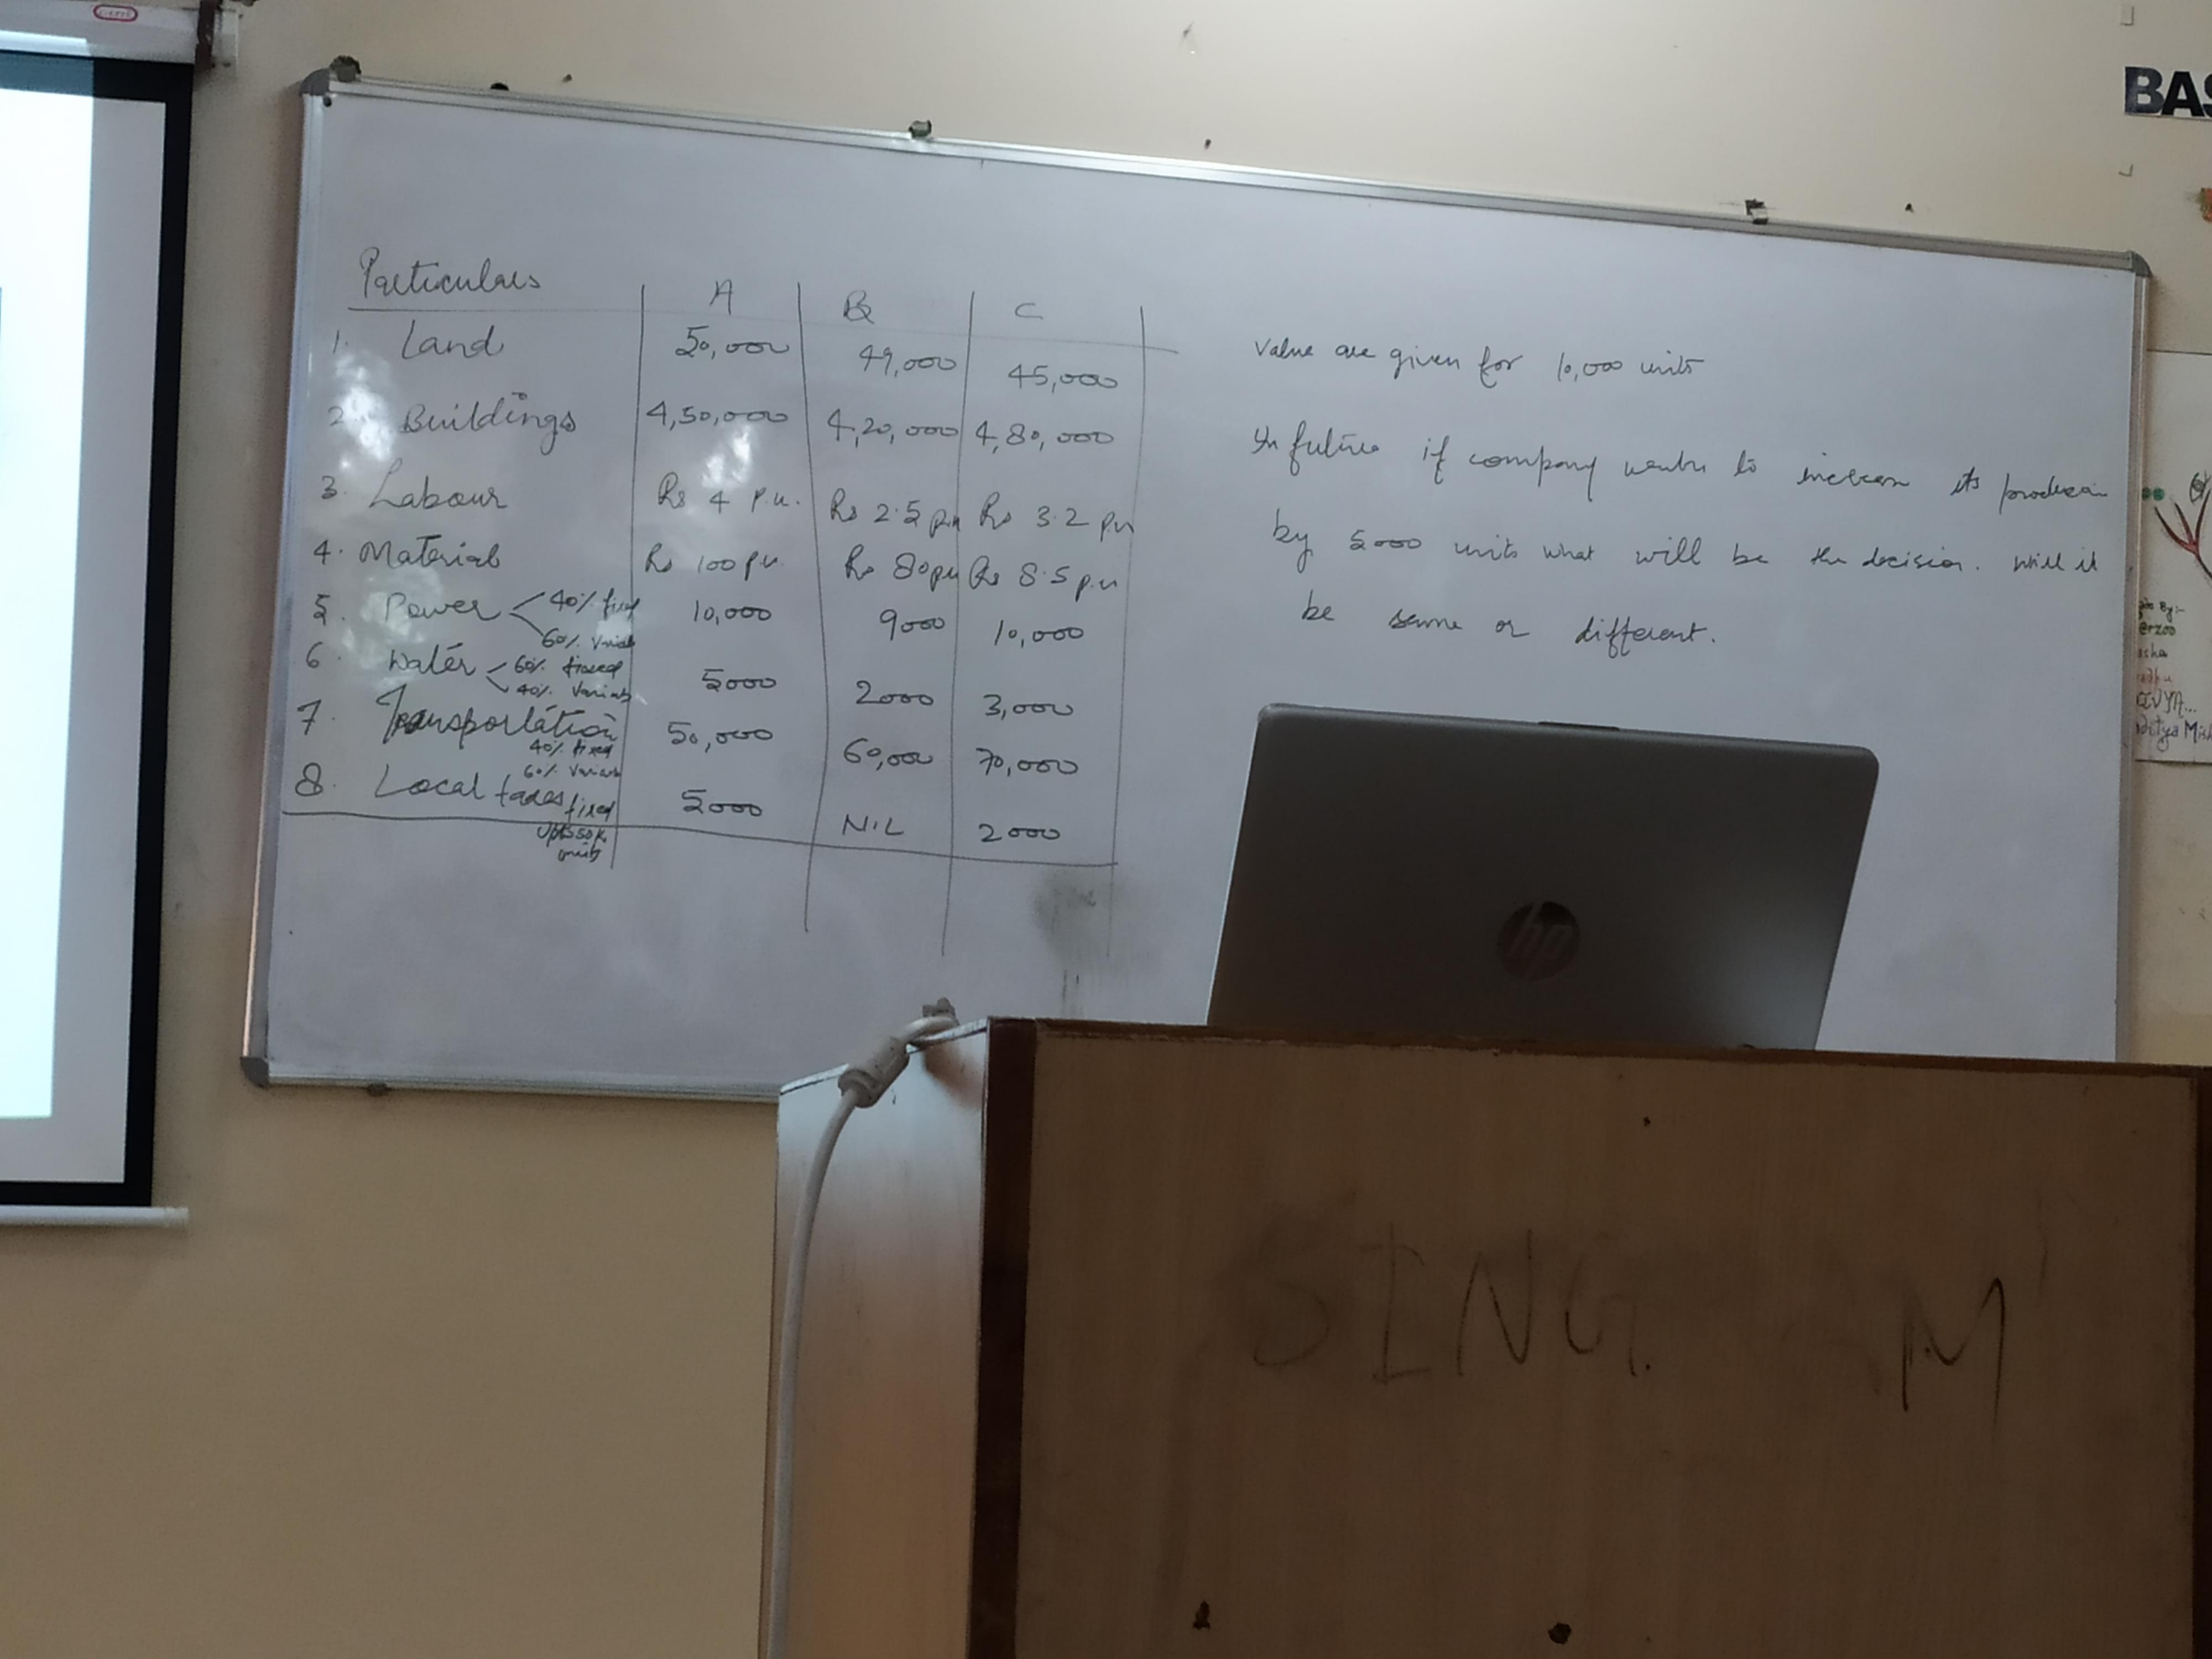 BAS
Particulars A B C
1. Land 50,000 49,000 45,000
2. Buildings 4,50,000 4,20,000 4,80,000
3. Labour Rs 4 p.u. Rs 2.5 p.u Rs 3.2 p.u
4. Material Rs 100 p.u. Rs 80 p.u Rs 8.5 p.u
5. Power 40% fixed 10,000 9000 10,000
60% Variab
6. Water 60% fixed 5000 2000 3,000
40% Variab
7. Transportation 50,000 60,000 70,000
40% fixed
60% Variab
8. Local taxes fixed 5000 NIL 2000
upto 50 k
units
Value are given for 10,000 units
In future if company wants to increase its production
by 5000 units what will be the decision. Will it
be same or different.
hp
By:-
SING M